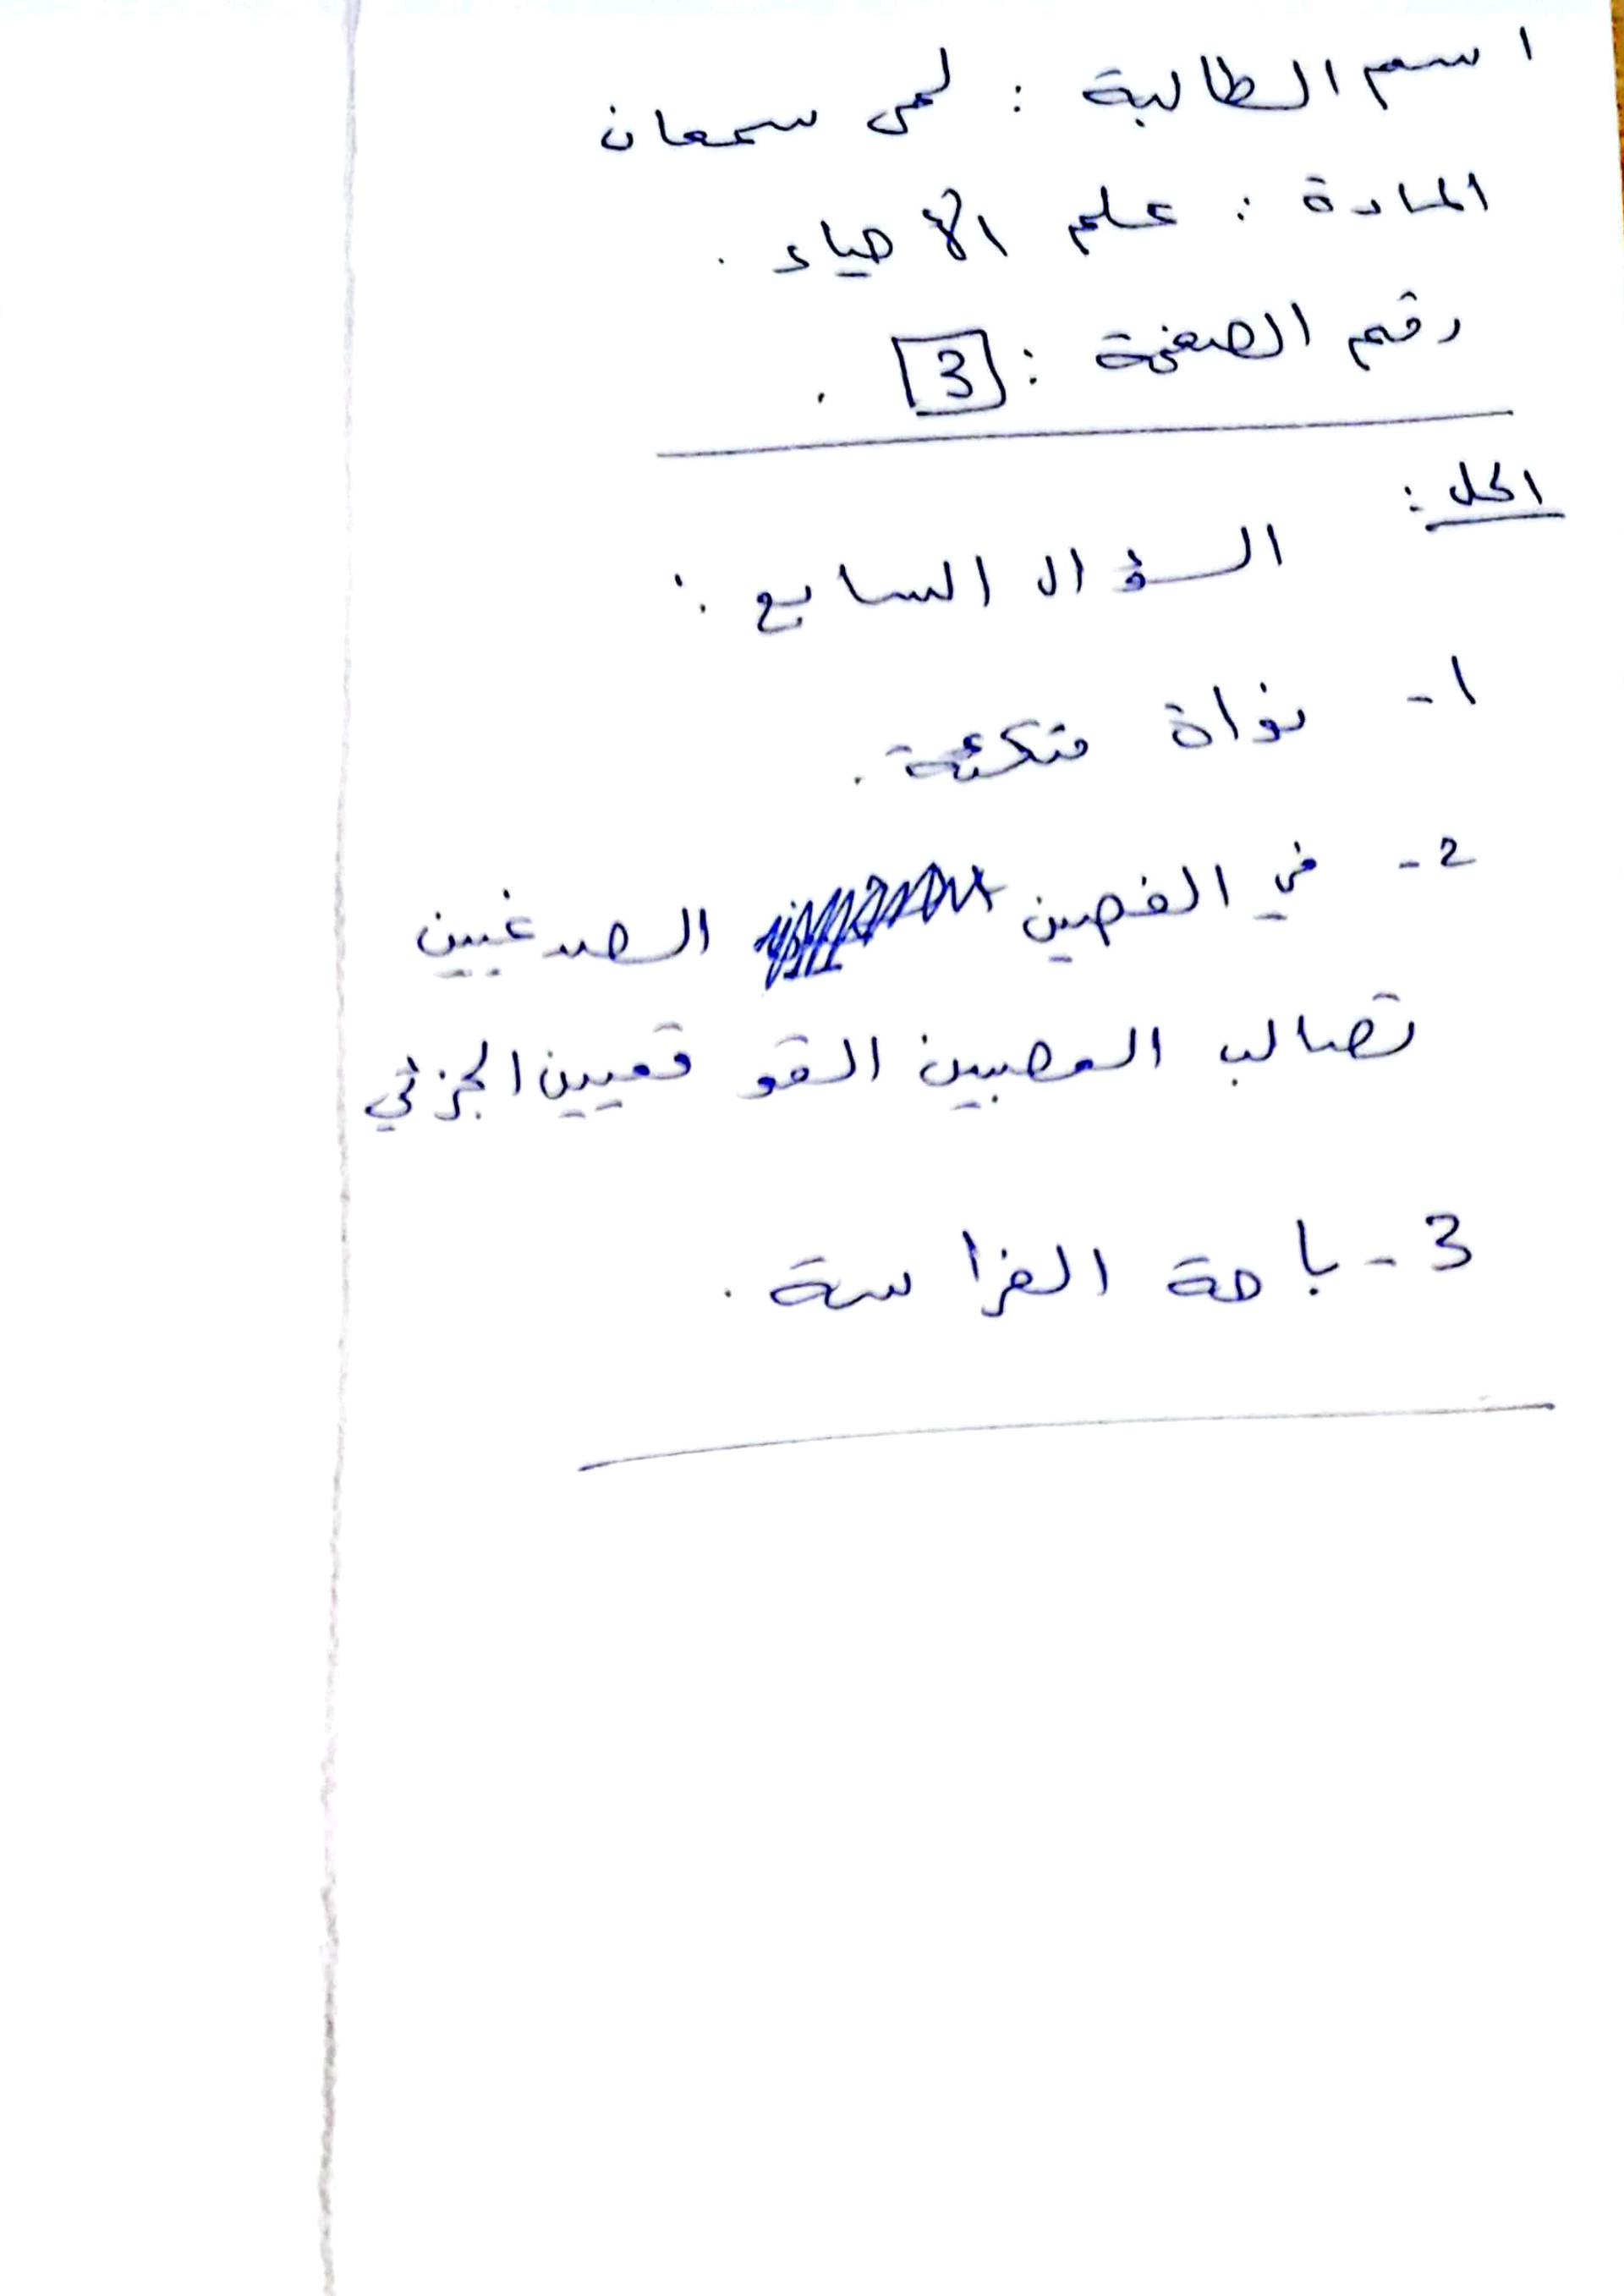 اسم الطالبة : لمى سمعان
المادة : علم الأحياء .
رقم الصفحة : 3 .
الحل :
السؤال السابع :
1- نواة متكئة .
2- في الفصين الصدغيين
تصالب العصبين القوقعيين الجزئي
3- باحة الفراسة .